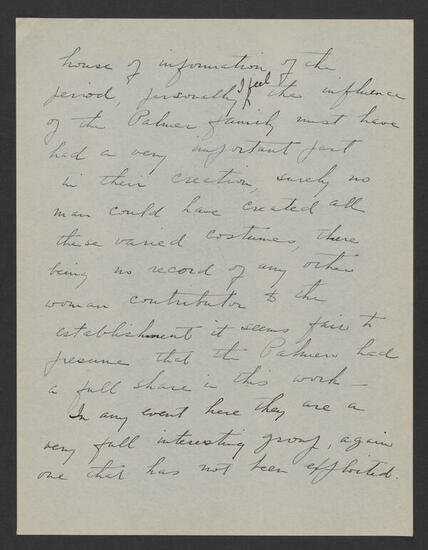 house of information of the
period, personally I feel the influence
of the Palmer family must have
had a very important part
in their creation, surely no
man could have created all
these varied costumes, there
being no record of any other
woman contributor to the
establishment it seems fair to
presume that the Palmers had
a full share in this work —
In any event here they are a
very full interesting group, again
one that has not been exploited.